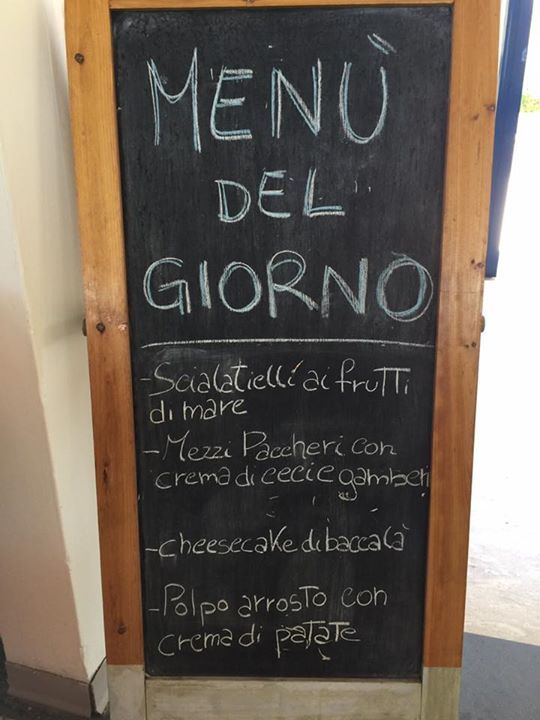 MENÙ
DEL
GIORNO
-Scialatielli ai fruTTi
di mare
-Mezzi Paccheri con
crema di ceci e gamberi
-cheesecake di baccalà
-Polpo arrosTo con
crema di paTaTe